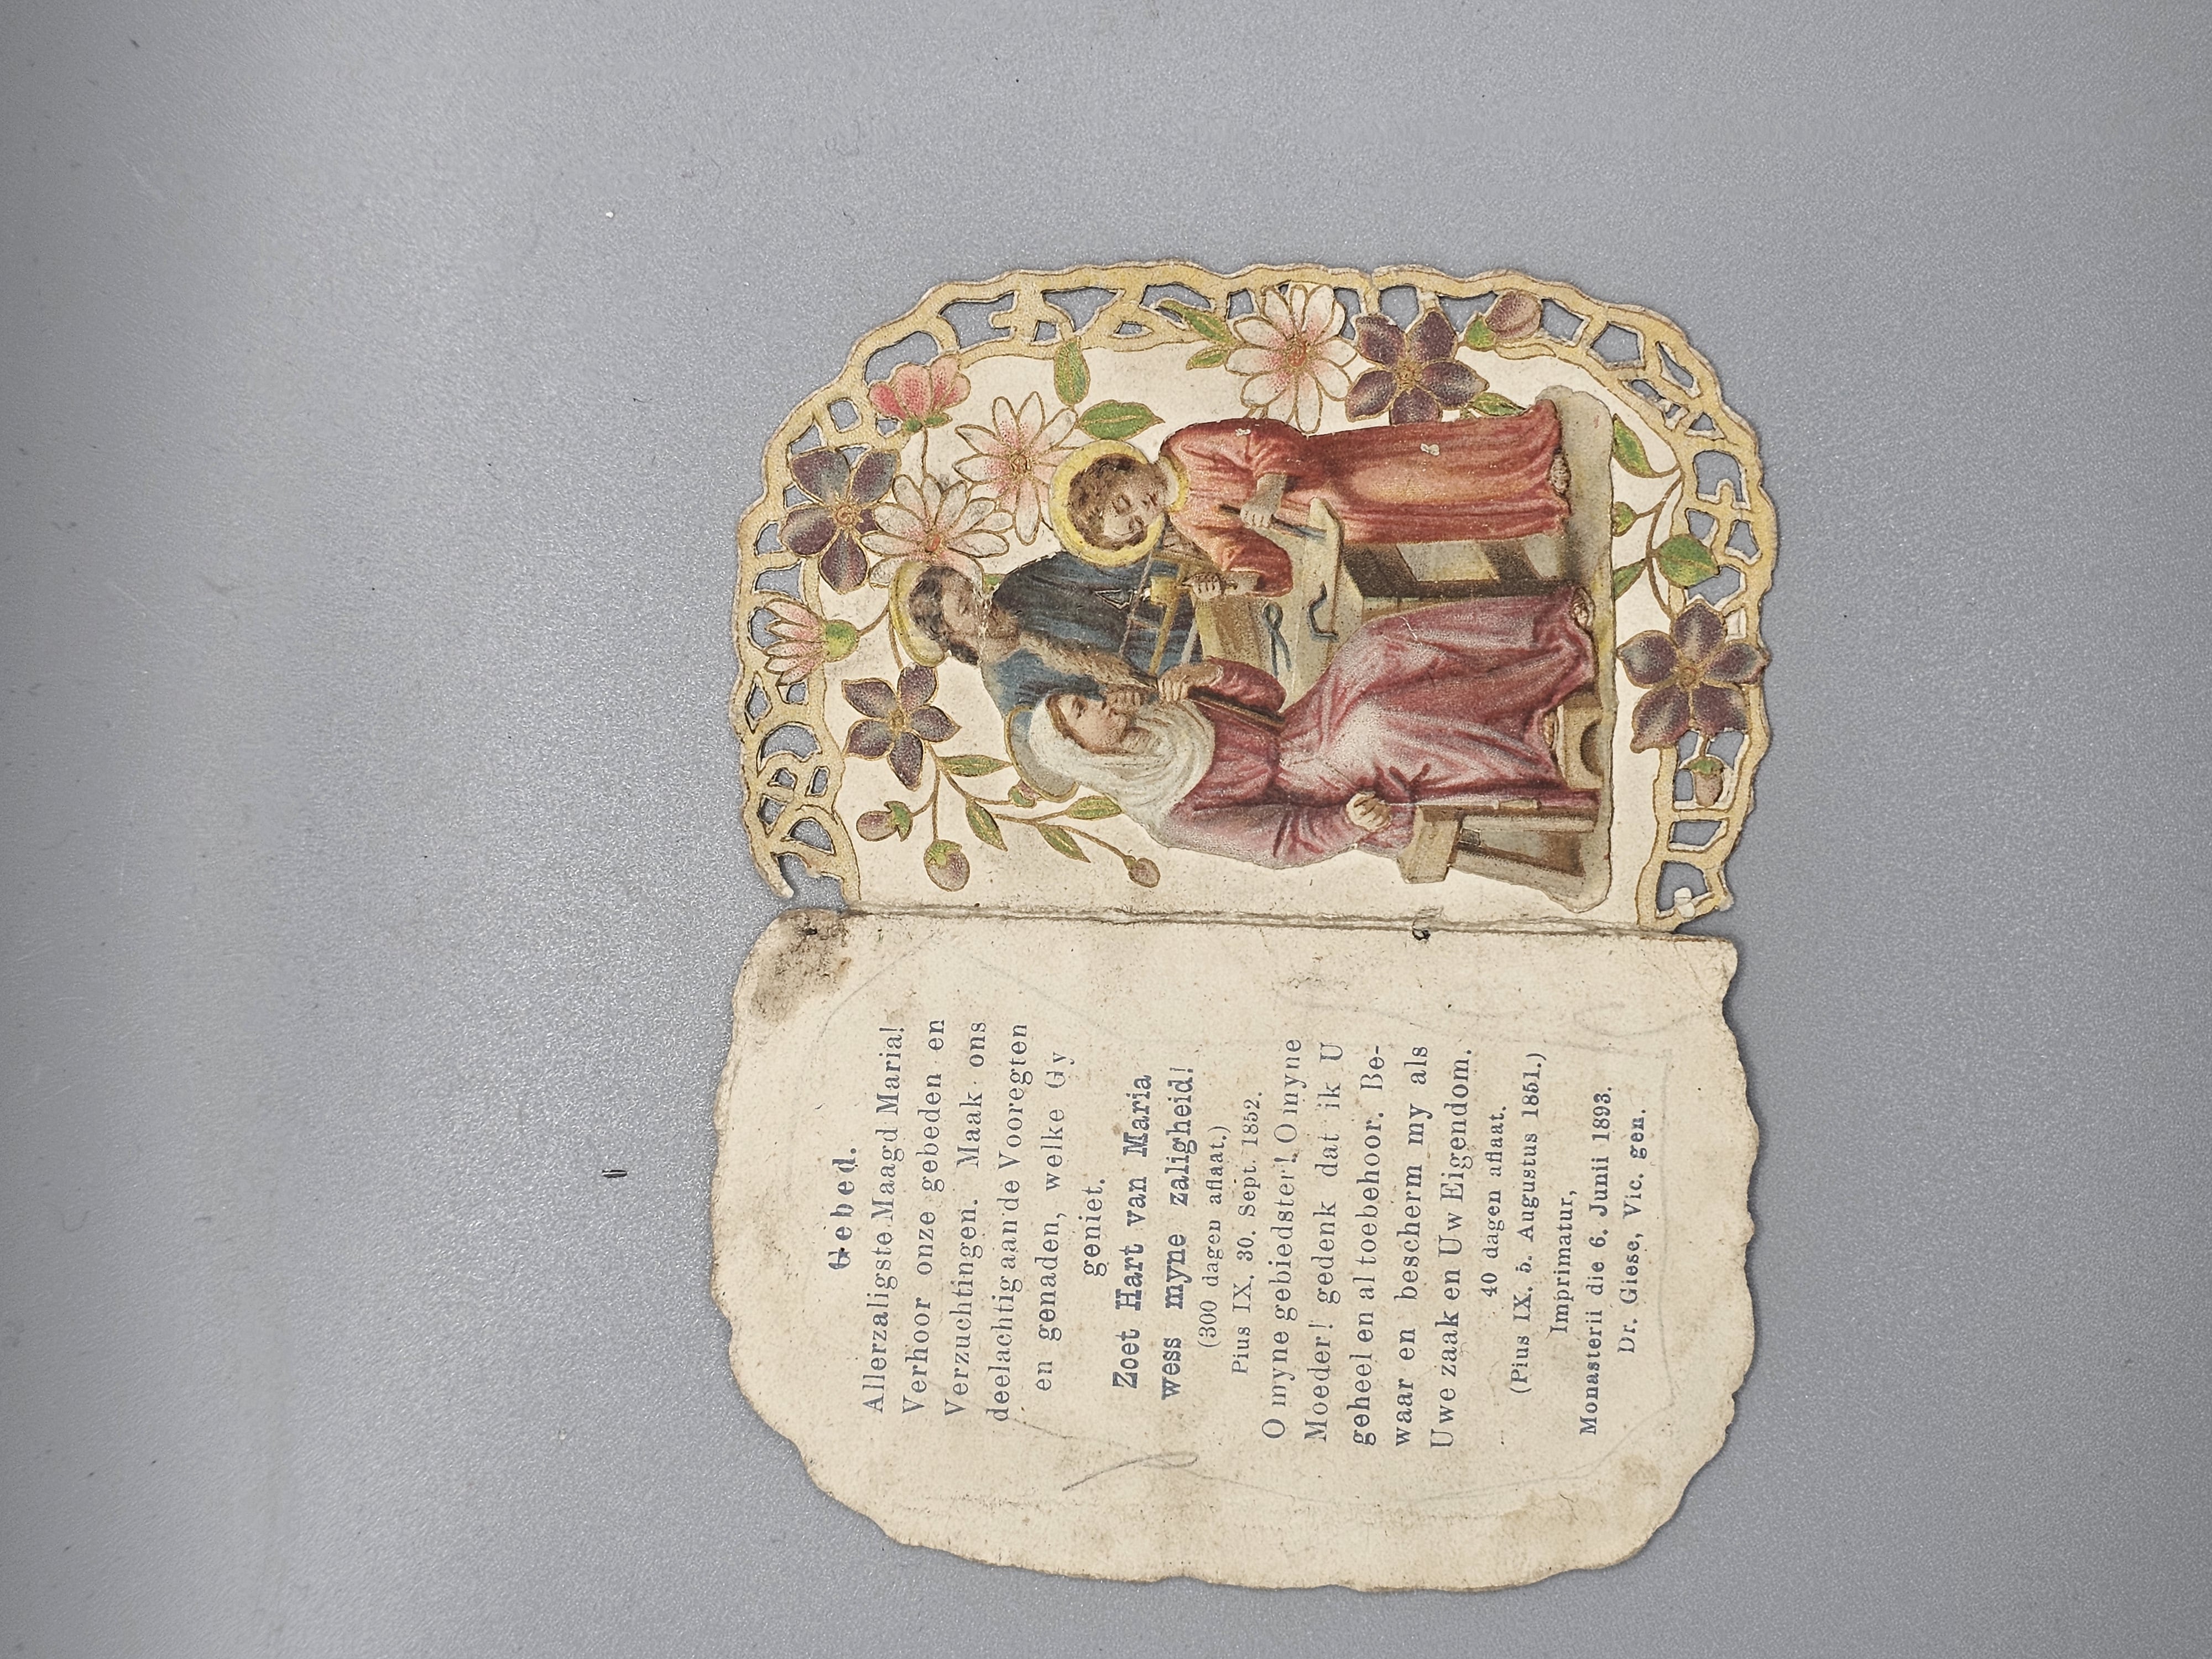 Gebed.
Allerzaligste Maagd Maria!
Verhoor onze gebeden en
Verzuchtingen. Maak ons
deelachtig aan de Vooregten
en genaden, welke Gy
geniet.
Zoet Hart van Maria
wess myne zaligheid!
(300 dagen aflaat.)
Pius IX. 30. Sept. 1852.
O myne gebiedster! O myne
Moeder! gedenk dat ik U
geheel en al toebehoor. Be-
waar en bescherm my als
Uwe zaak en Uw Eigendom.
40 dagen aflaat.
(Pius IX. 5. Augustus 1851.)
Imprimatur,
Monasterii die 6. Junii 1893.
Dr. Giese, Vic. gen.